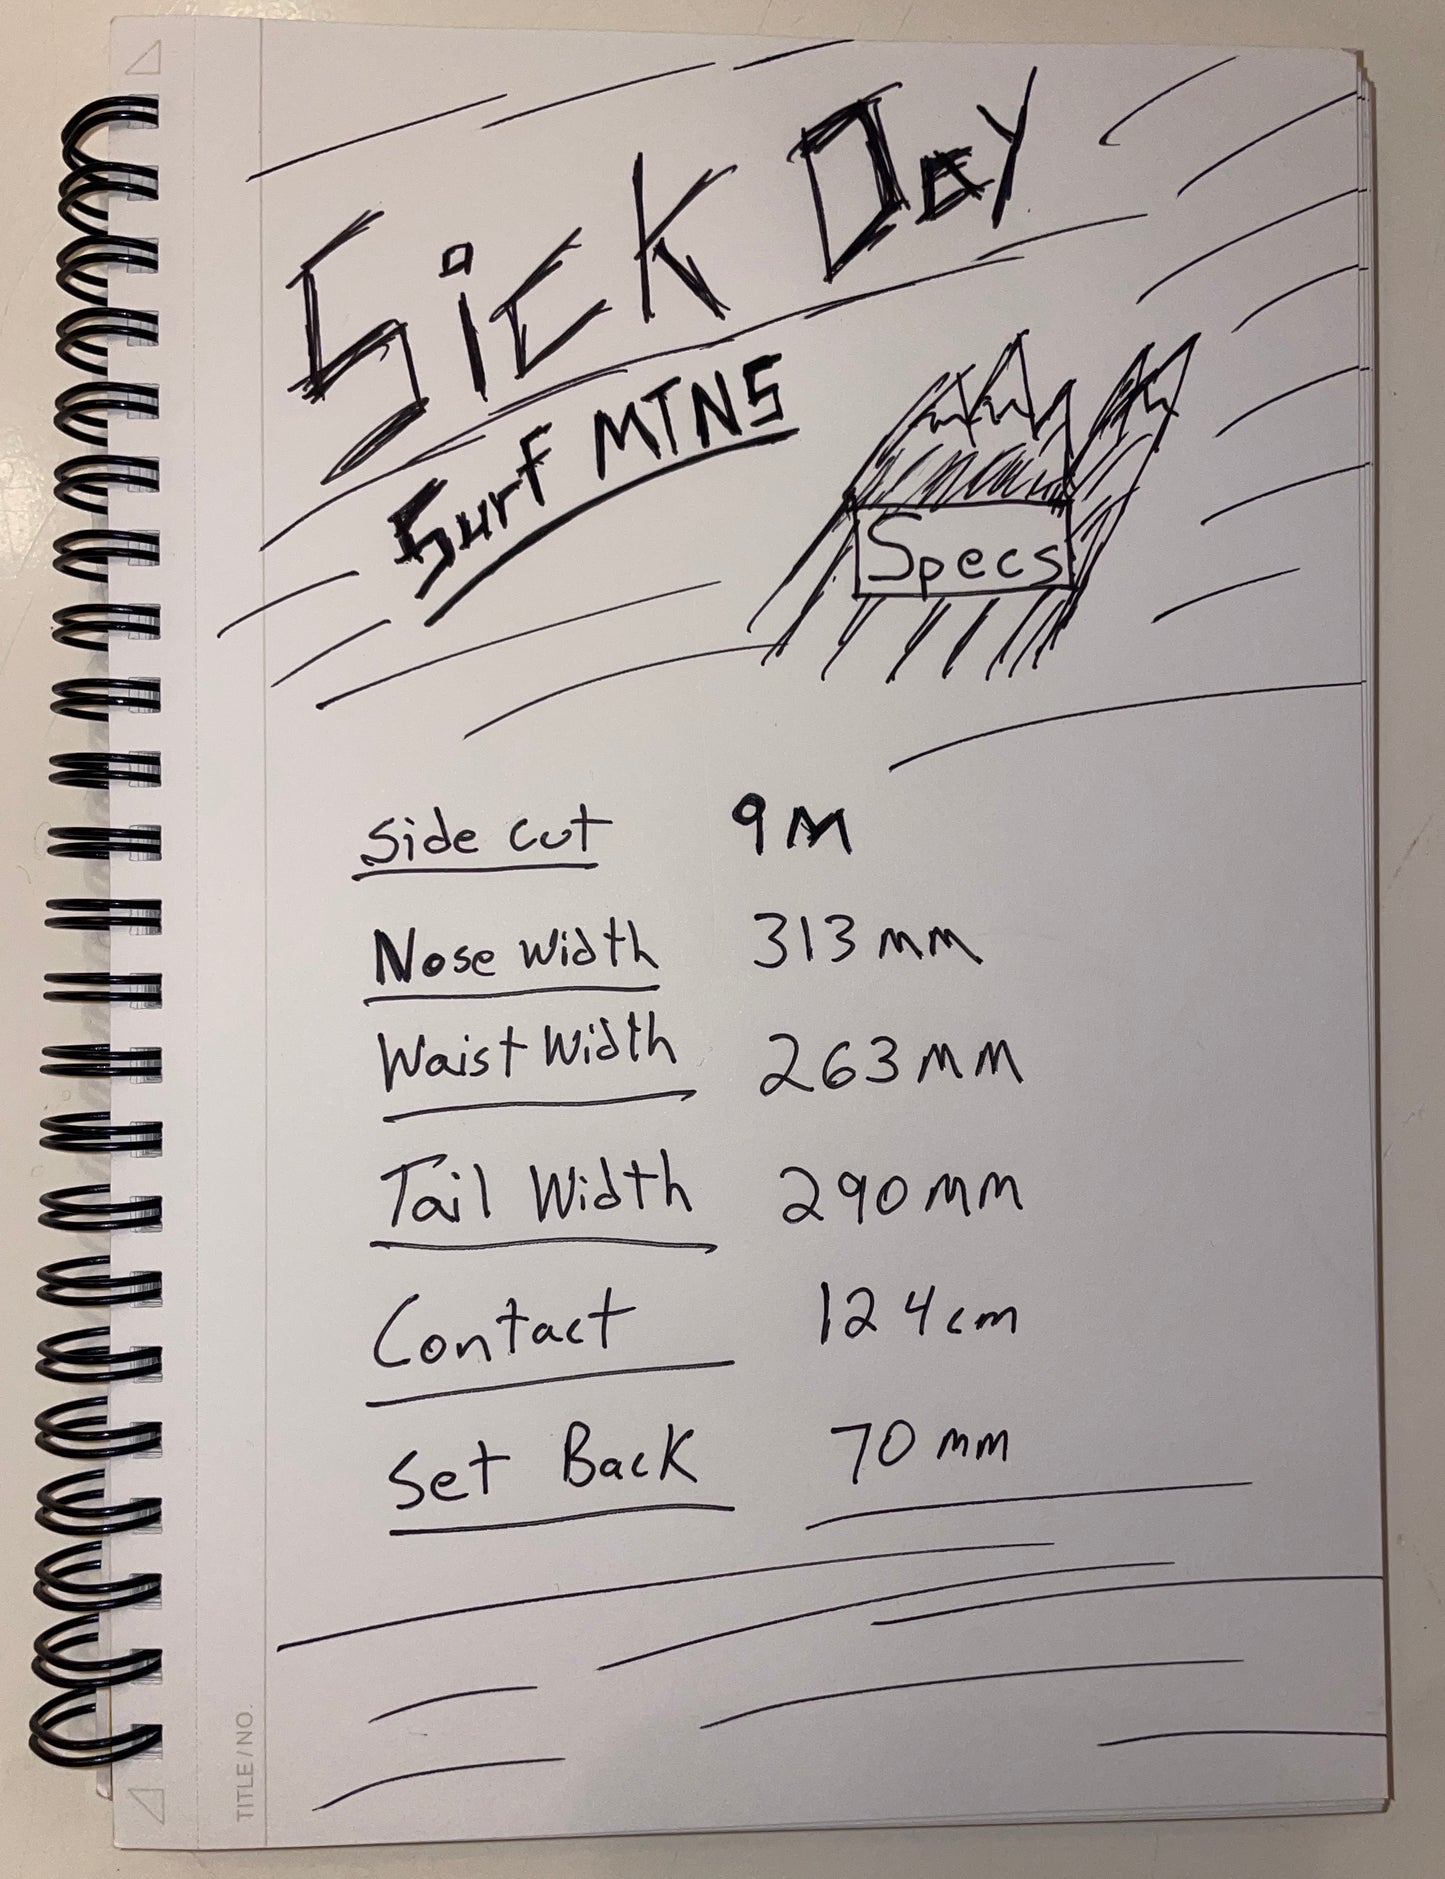 Sick Day
Surf MTNS
Specs
Side cut 9M
Nose Width 313mm
Waist Width 263mm
Tail Width 290mm
Contact 124cm
Set Back 70mm
TITLE/NO.